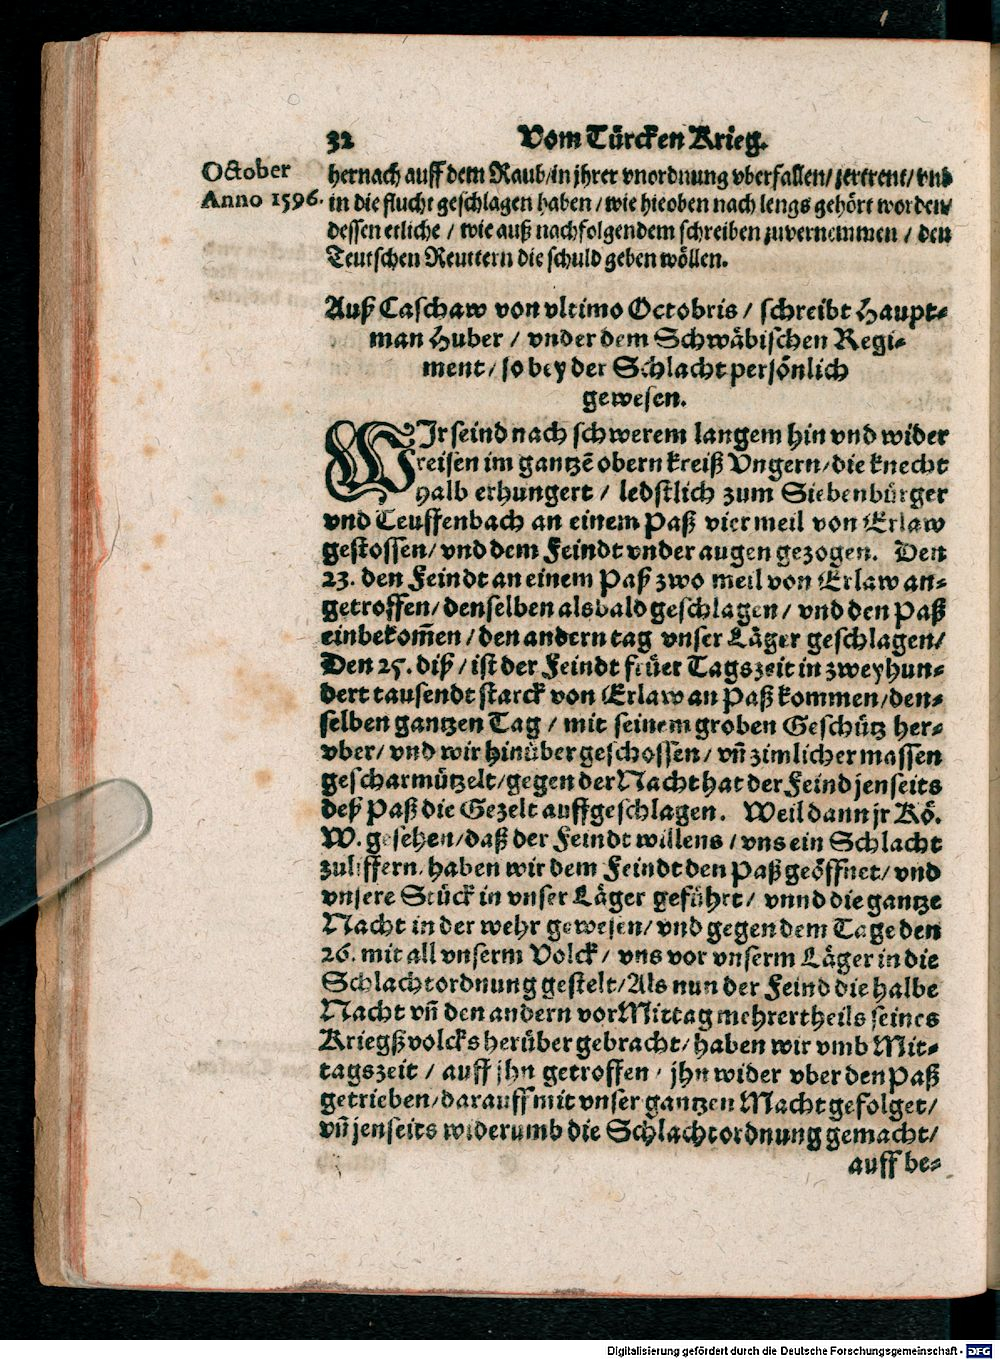 32 Vom Türcken Krieg.
October
Anno 1596.
hernach auff dem Raub/in jhrer vnordnung vberfallen/zertrent/vnd
in die flucht geschlagen haben/wie hieoben nach lengs gehört worden/
dessen etliche/wie auß nachfolgendem schreiben zuvernemmen/den
Teutschen Reuttern die schuld geben wöllen.
Auß Caschaw von vltimo Octobris/schreibt Haupt-
man Huber/vnder dem Schwäbischen Regi-
ment/so bey der Schlacht persönlich
gewesen.
WIr seind nach schwerem langem hin vnd wider
reisen im gantzē obern kreiß Vngern/die knecht
halb erhungert/ledstlich zum Siebenbürger
vnd Teuffenbach an einem Paß vier meil von Erlaw
gestossen/vnd dem Feindt vnder augen gezogen. Den
23. den Feindt an einem Paß zwo meil von Erlaw an-
getroffen/denselben alsbald geschlagen/vnd den Paß
einbekom̃en/den andern tag vnser Läger geschlagen/
Den 25. diß/ist der Feindt früer Tagszeit in zweyhun-
dert tausendt starck von Erlaw an Paß kommen/den-
selben gantzen Tag/mit seinem groben Geschütz her-
vber/vnd wir hinüber geschossen/vñ zimlicher massen
gescharmützelt/gegen der Nacht hat der Feind jenseits
deß Paß die Gezelt auffgeschlagen. Weil dann jr Kö.
W. gesehen/daß der Feindt willens/vns ein Schlacht
zuliffern/haben wir dem Feindt den Paß geöffnet/vnd
vnsere Stück in vnser Läger geführt/vnnd die gantze
Nacht in der wehr gewesen/vnd gegen dem Tage den
26. mit all vnserm Volck/vns vor vnserm Läger in die
Schlachtordnung gestelt/Als nun der Feind die halbe
Nacht vñ den andern vorMittag mehrertheils seines
Kriegßvolcks herüber gebracht/haben wir vmb Mit-
tagszeit/auff jhn getroffen/jhn wider vber den Paß
getrieben/darauff mit vnser gantzen Macht gefolget/
vñ jenseits widerumb die Schlachtordnung gemacht/
auff be-
Digitalisierung gefördert durch die Deutsche Forschungsgemeinschaft - DFG